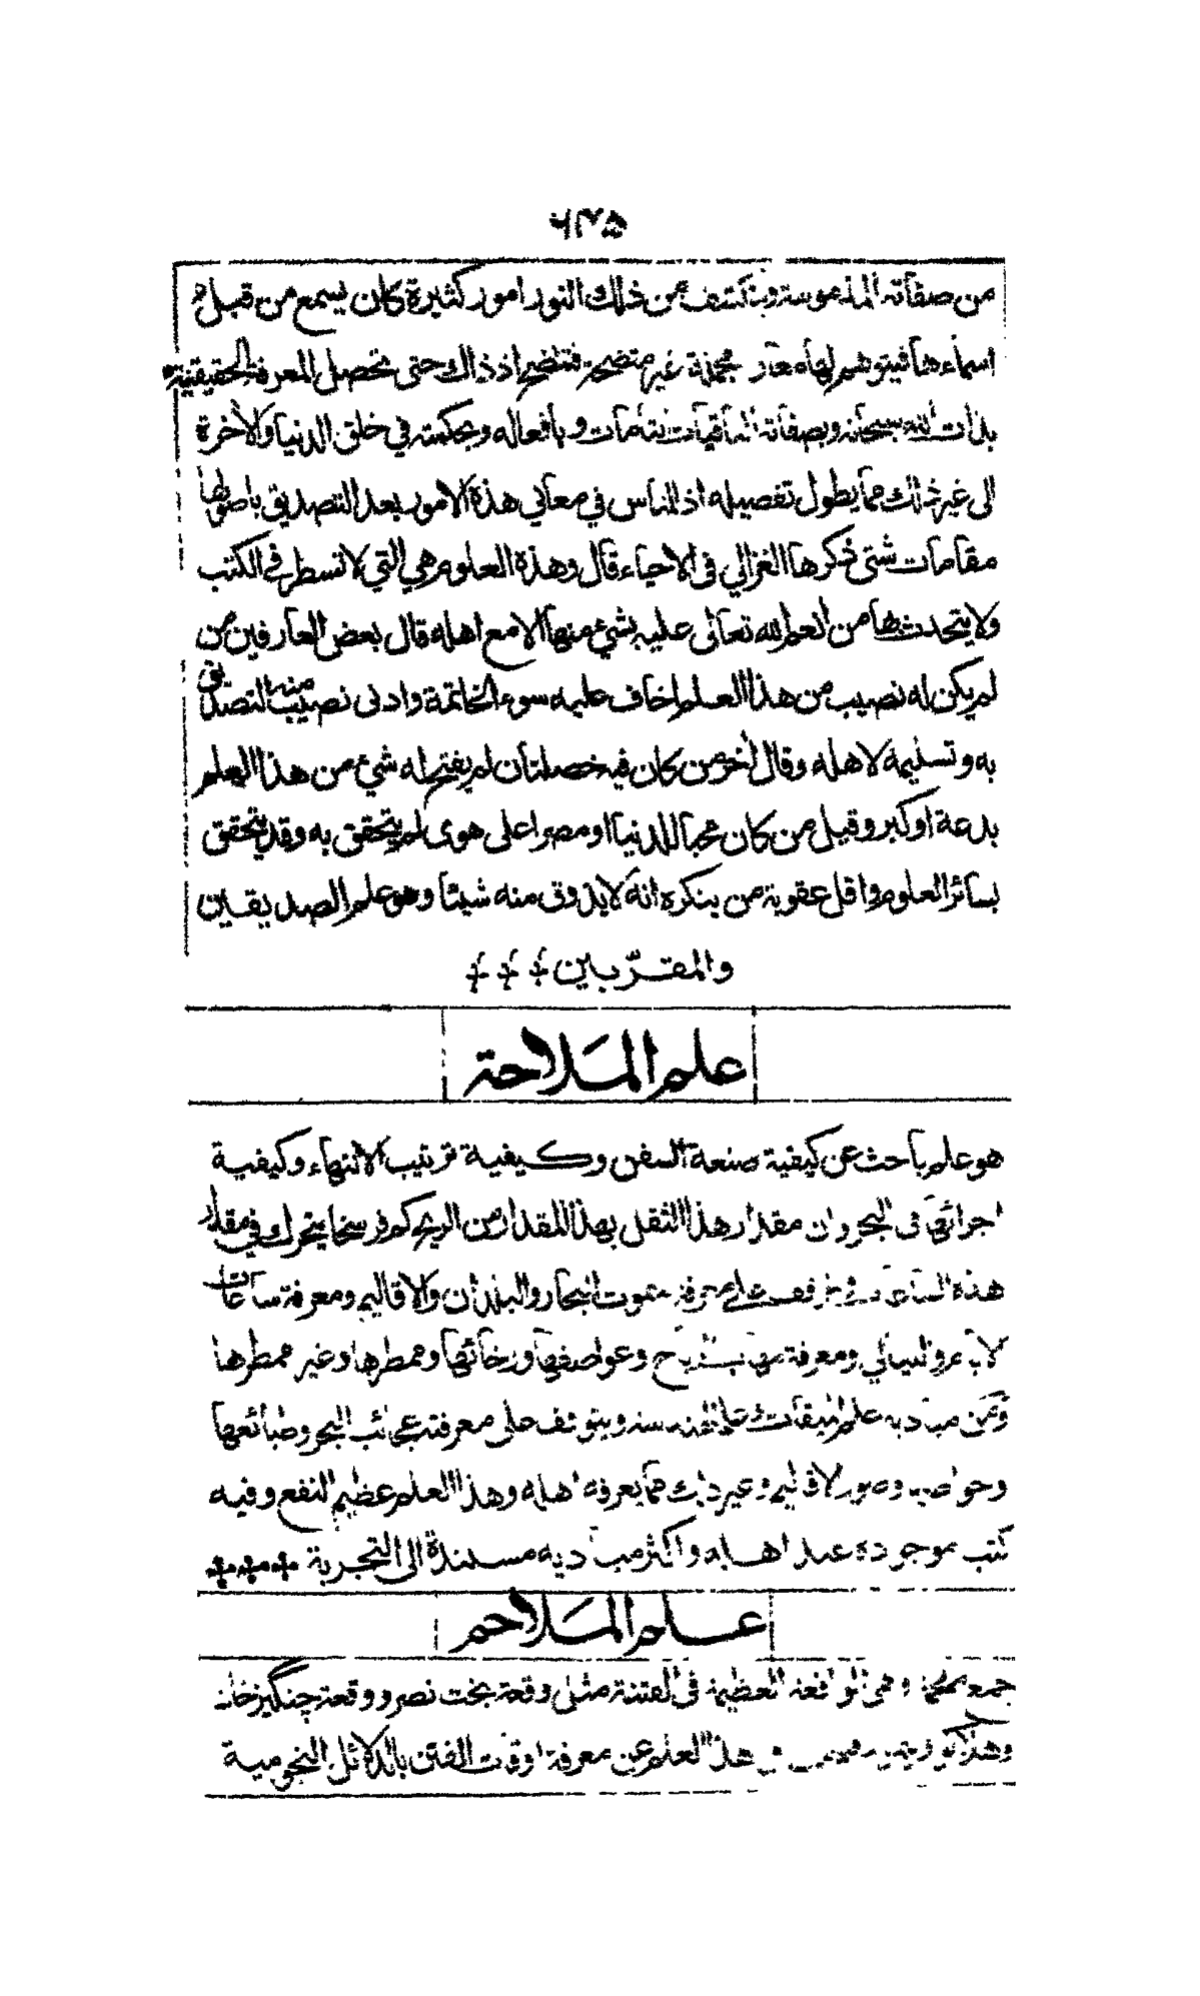 ٦٤٥
من صفاته المذمومة وينكشف من ذلك النور امور كثيرة كان يسمع من قبل
اسماءها فيتوهم لها معان مجملة غير متضحة فتتضح اذ ذاك حتى تحصل المعرفة الحقيقية
بذات الله سبحانه وبصفاته الباقيات التامات وبافعاله وبحكمته في خلق الدنيا والاخرة
الى غير ذلك مما يطول تفصيله اذ للناس في معاني هذة الامور بعد التصديق باصولها
مقامات شتى ذكرها الغزالي في الاحياء قال وهذة العلوم هي التي لا تسطر في الكتب
ولا يتحدث بها من انعم الله تعالى عليه بشئ منها الا مع اهله قال بعض العارفين من
لم يكن له نصيب من هذا العلم اخاف عليه سوء الخاتمة وادنى نصيب منه التصديق
به وتسليمه لاهله وقال اخر من كان فيه خصلتان لم يفتح له شئ من هذا العلم
بدعة او كبر وقيل من كان محبا للدنيا او مصرا على هوى لم يتحقق به وقد يتحقق
بسائر العلوم واقل عقوبة من ينكره انه لا يذوق منه شيئا وهو علم الصديقين
والمقرّبين
علم المَلاحة
هو علم باحث عن كيفية صنعة السفن وكيفية ترتيب الاتها وكيفية
اجرائها في البحر وان مقدار هذا الثقل بهذا المقدار من الريح كم فرسخا يتحرك في مقدار
هذه الساعة ويتوقف على معرفة سموت البحار والبلدان والاقاليم ومعرفة ساعات
الايام والليالي ومعرفة مهاب الرياح وعواصفها ورخائها وممطرها وغير ممطرها
ومن مباديه علم الميقات وعلم الهندسة ويتوقف على معرفة عجائب البحر وطبائعها
وخواصه وصور الاقاليم وغير ذلك مما يعرفه اهله وهذا العلم عظيم النفع وفيه
كتب موجودة عند اهله واكثر مباديه مسندة الى التجربة
علم المَلاحم
جمع ملحمة وهي الواقعة العظيمة في الفتنة مثل وقعة بخت نصر ووقعة چنگيز خان
هذا العلم عن معرفة اوقات الفتن بالدلائل النجومية